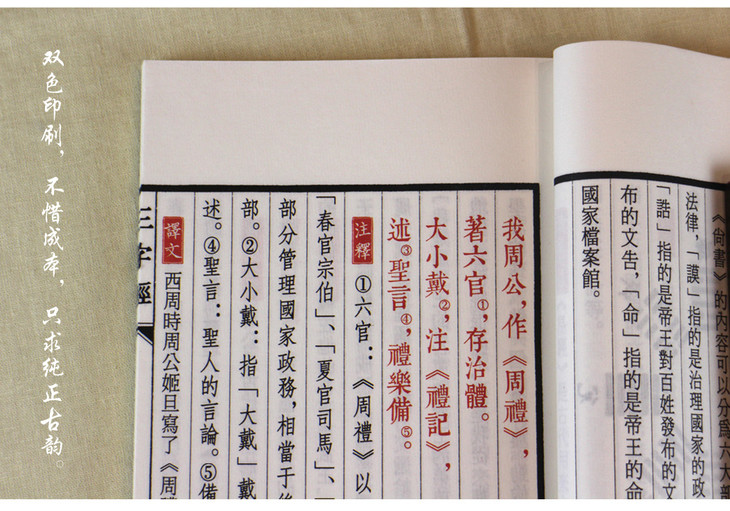 双色印刷，不惜成本，只求纯正古韵。
《尚書》的內容可以分爲六大部
法律，「謨」指的是治理國家的政
「誥」指的是帝王對百姓發布的文
布的文告，「命」指的是帝王的命
國家檔案館。
我周公，作《周禮》，
著六官①，存治體。
大小戴②，注《禮記》，
述③聖言④，禮樂備⑤。
注釋 ①六官：《周禮》以
「春官宗伯」、「夏官司馬」、
部分管理國家政務，相當于後
部。②大小戴：指「大戴」戴
述。④聖言：聖人的言論。⑤備
譯文 西周時周公姬旦寫了《周禮
三字經